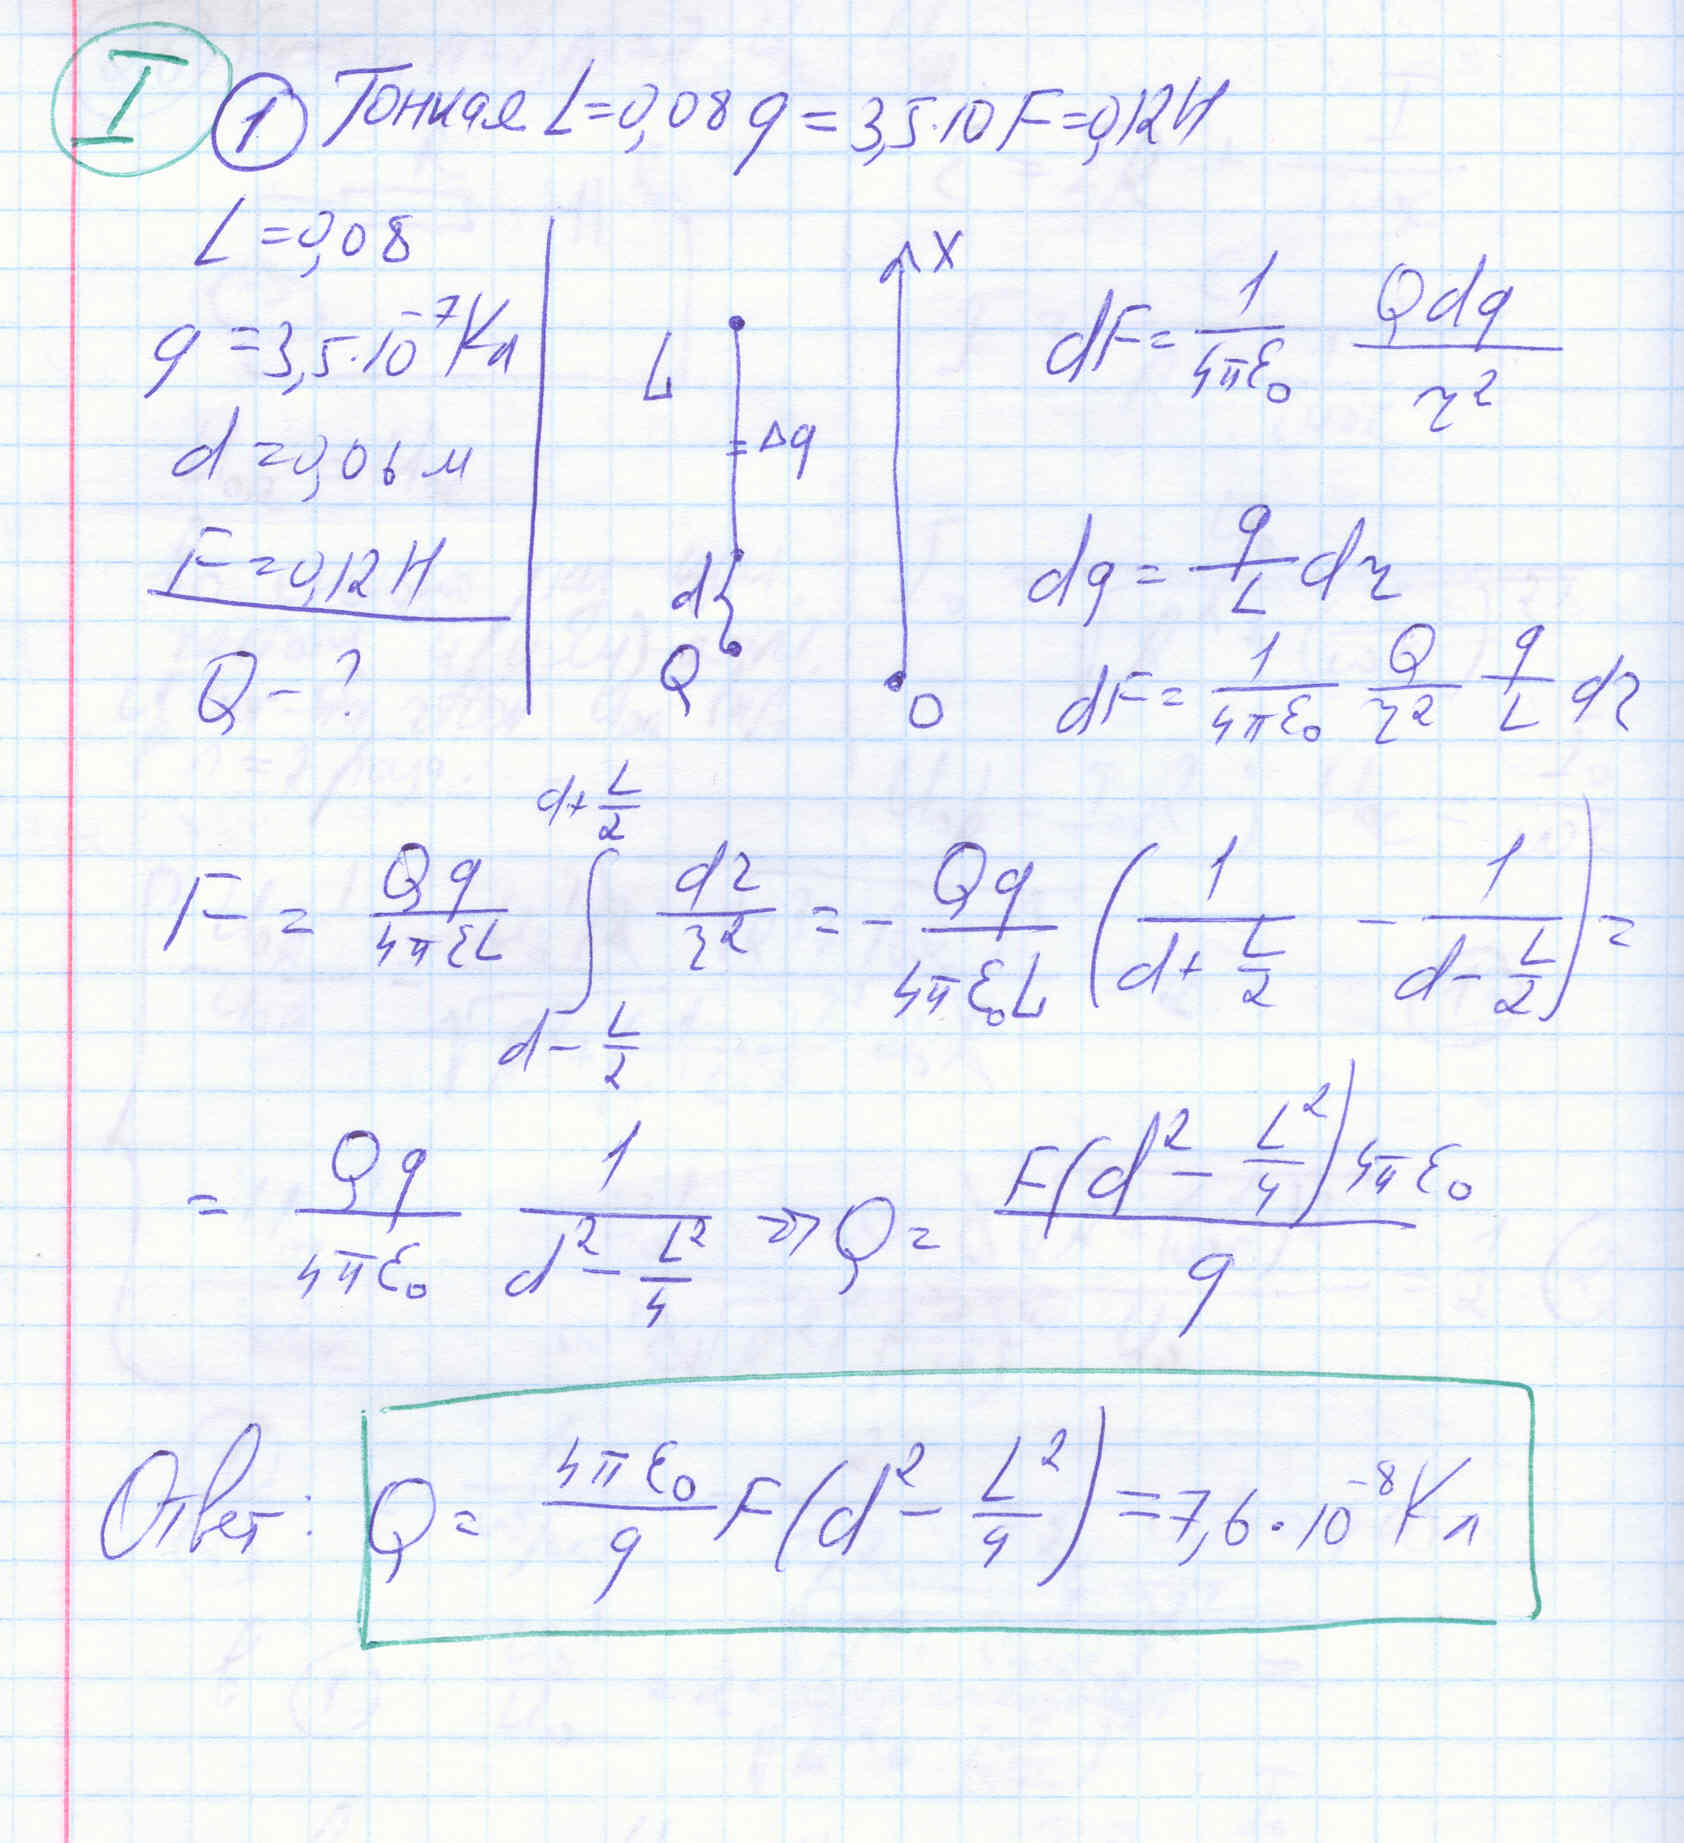 I 1 Тонкая L=0,08 q=3,5·10 F=0,12Н
L=0,08
q=3,5·10⁻⁷Кл
d=0,06м
F=0,12Н
Q-?
L
Δq
d{
Q
X
O
dF= 1/(4πε₀) Qdq/r²
dq= q/L dr
dF= 1/(4πε₀) Q/r² q/L dr
F= Qq/(4πεL) ∫_{d-L/2}^{d+L/2} dr/r² =- Qq/(4πε₀L) (1/(d+L/2) - 1/(d-L/2))=
= Qq/(4πε₀) 1/(d²-L²/4) ⇒ Q= F(d²-L²/4)4πε₀/q
Ответ: Q= 4πε₀/q F(d²-L²/4)=7,6·10⁻⁸Кл